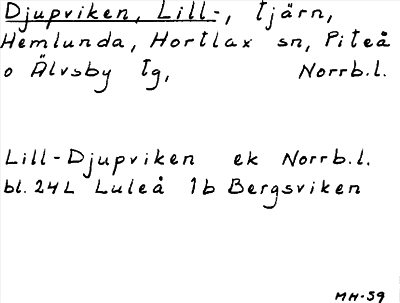 Djupviken, Lill-, tjärn,
Hemlunda, Hortlax sn, Piteå
o Älvsby tg, Norrb.l.
Lill-Djupviken ek Norrb.l.
bl. 24L Luleå 1b Bergsviken
MH-59